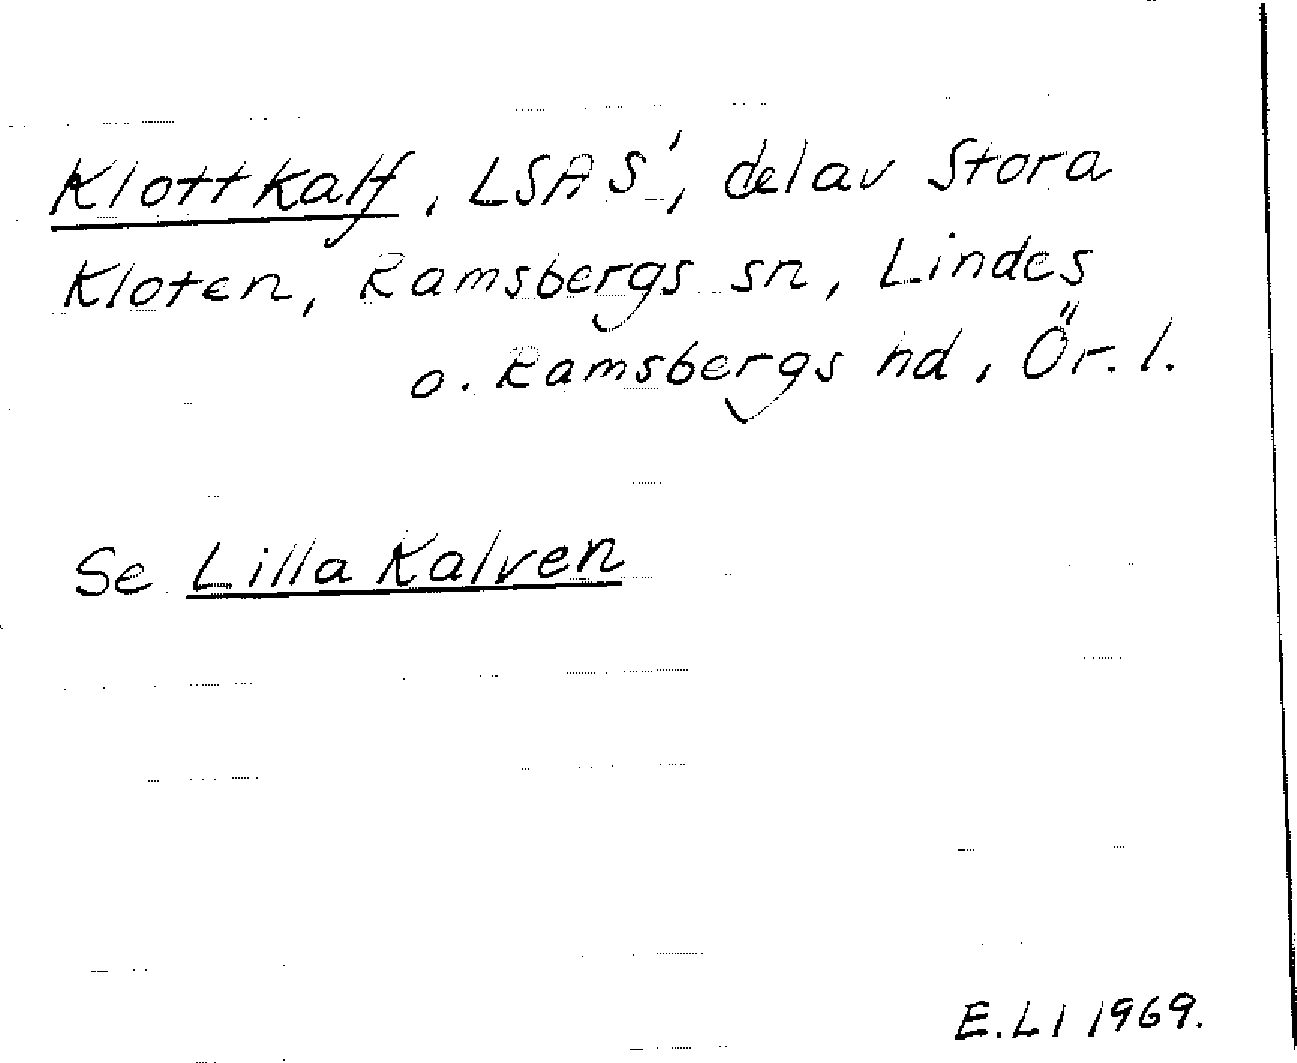 Klottkalf, LSA S', del av Stora
Kloten, Ramsbergs sn, Lindes
o. Ramsbergs hd, Ör. l.
Se Lilla Kalven
E. L I 1969.